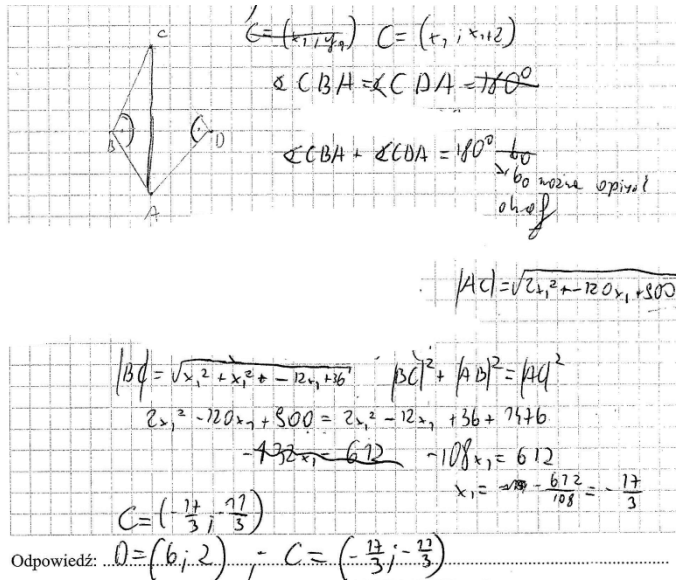 C
B
D
A
G = (x₁; y₁) C = (x₁; x₁+2)
∢CBA = ∢CDA = 180°
∢CBA + ∢CDA = 180° bo
bo można opisać
|AC| = √2x₁² + -120x₁ + 900
|BC| = √x₁² + x₁² + -12x₁ + 36 |BC|² + |AB|² = |AC|²
2x₁² - 120x₁ + 900 = 2x₁² - 12x₁ + 36 + 1476
-132x₁ = 612 -108x₁ = 612
x₁ = - 612/108 = - 17/3
C = (-17/3; -11/3)
Odpowiedź: D = (6; 2) ; C = (-17/3; -11/3)